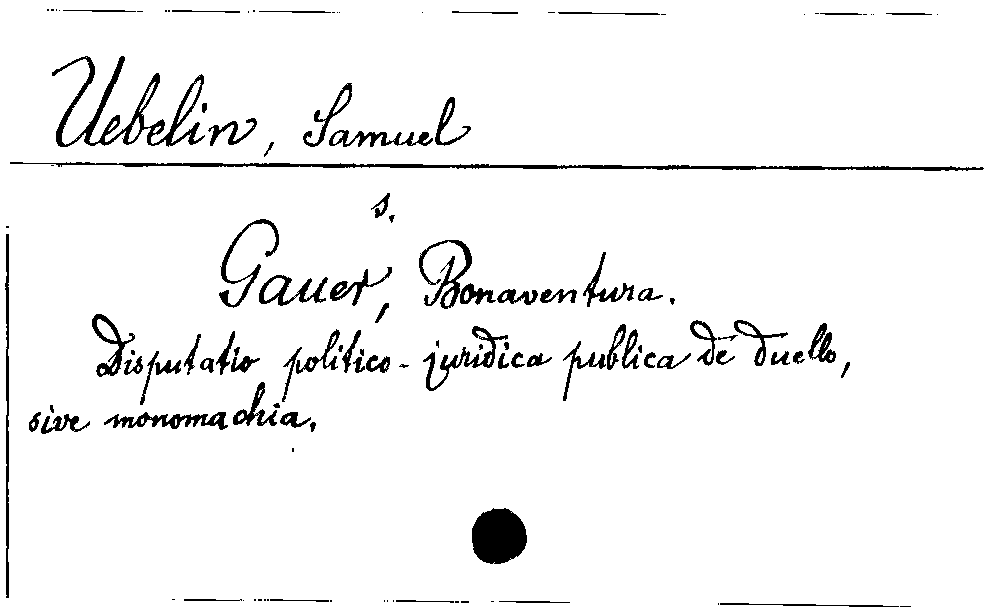 Uebelin, Samuel
s.
Gauer, Bonaventura.
Disputatio politico-juridica publica de duello,
sive monomachia.